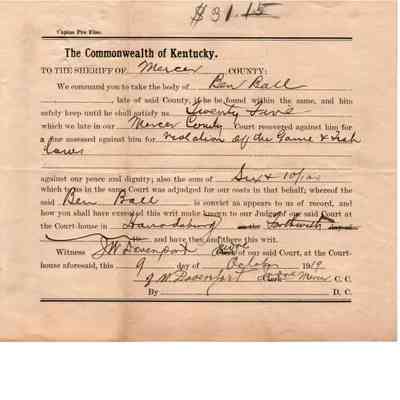 $31.15
Capias Pro Fine.
The Commonwealth of Kentucky.
TO THE SHERIFF OF Mercer COUNTY:
We command you to take the body of Ben Ball
, late of said County, if he be found within the same, and him
safely keep until he shall satisfy us Twenty Five
which we late in our Mercer County Court recovered against him for
a fine assessed against him for violation of the Game & Fish
Laws
against our peace and dignity; also the sum of Six & 15/100
which to us in the same Court was adjudged for our costs in that behalf; whereof the
said Ben Ball is convict as appears to us of record, and
how you shall have executed this writ make known to our Judge of our said Court at
the Court-house in Harrodsburg on the Forthwith day of
and have then and there this writ.
Witness J W Davenport Clerk of our said Court, at the Court-
house aforesaid, this 9 day of October 1919
J. W. Davenport Mercer C. C.
By D. C.